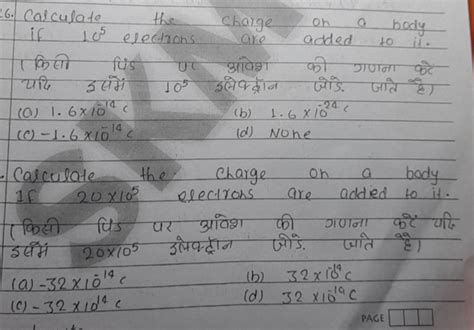 26. Calculate the charge on a body
if 10⁵ electrons are added to it.
(किसी पिंड पर आवेश की गणना करें
यदि इसमें 10⁵ इलेक्ट्रॉन जोड़े जाते है)
(a) 1.6×10⁻¹⁴ c (b) 1.6×10⁻²⁴ c
(c) -1.6×10⁻¹⁴ c (d) None
. Calculate the charge on a body
If 20×10⁵ electrons are added to it.
(किसी पिंड पर आवेश की गणना करें यदि
इसमें 20×10⁵ इलेक्ट्रॉन जोड़े जाते है)
(a) -32×10⁻¹⁴ c (b) 32×10⁻¹⁴ c
(c) -32×10¹⁴ c (d) 32×10¹⁴ c
PAGE
SKM